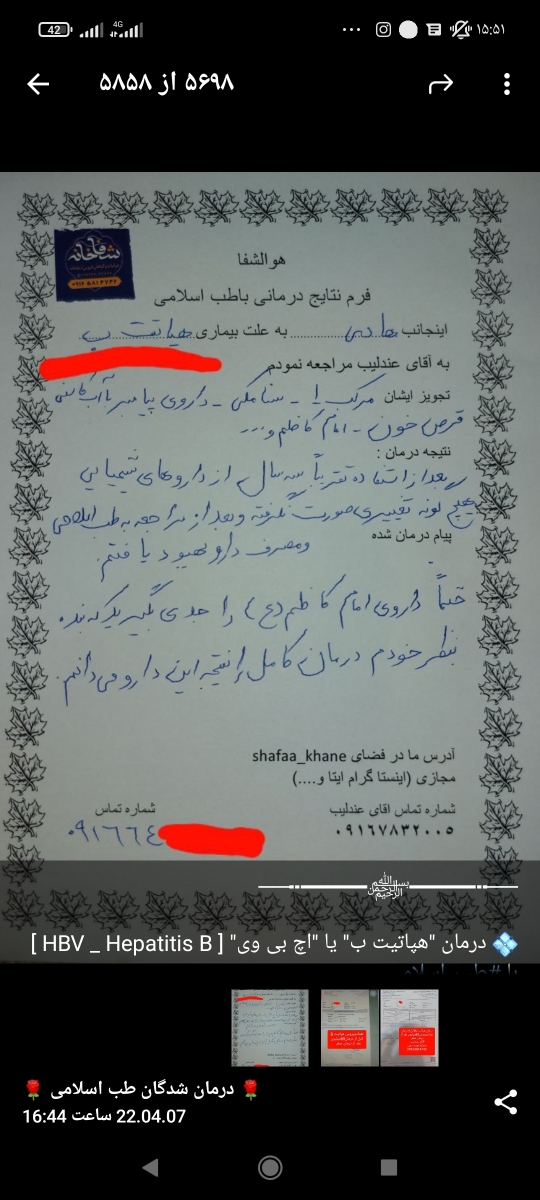 42
4G
۱۵:۵۱
۵۶۹۸ از ۵۸۵۸
هوالشفا
شفاخانه
فرم نتایج درمانی باطب اسلامی
اینجانب هادی به علت بیماری هپاتیت ب
به آقای عندلیب مراجعه نمودم
تجویز ایشان مرکب ۱ - سنامکی - داروی پیامبر با آب کاسنی
قرص خون - امام کاظم و...
نتیجه درمان :
بعد از استفاده تقریباً سه سال از داروهای شیمیایی
هیچ گونه تغییری صورت نگرفته و بعد از مراجعه به طب اسلامی
پیام درمان شده
و مصرف دارو بهبود یافتم.
حتماً داروی امام کاظم (ع) را جدی بگیرید که بنده
بنظر خودم درمان کامل را نتیجه این دارو می‌دانم.
آدرس ما در فضای shafaa_khane
مجازی (اینستا گرام ایتا و....)
شماره تماس اقای عندلیب
۰۹۱۶۷۸۳۲۰۰۵
شماره تماس
۰۹۱۶۶۴
بسم الله الرحمن الرحیم
درمان "هپاتیت ب" یا "اچ بی وی" [ HBV _ Hepatitis B ]
درمان شدگان طب اسلامی
22.04.07 ساعت 16:44